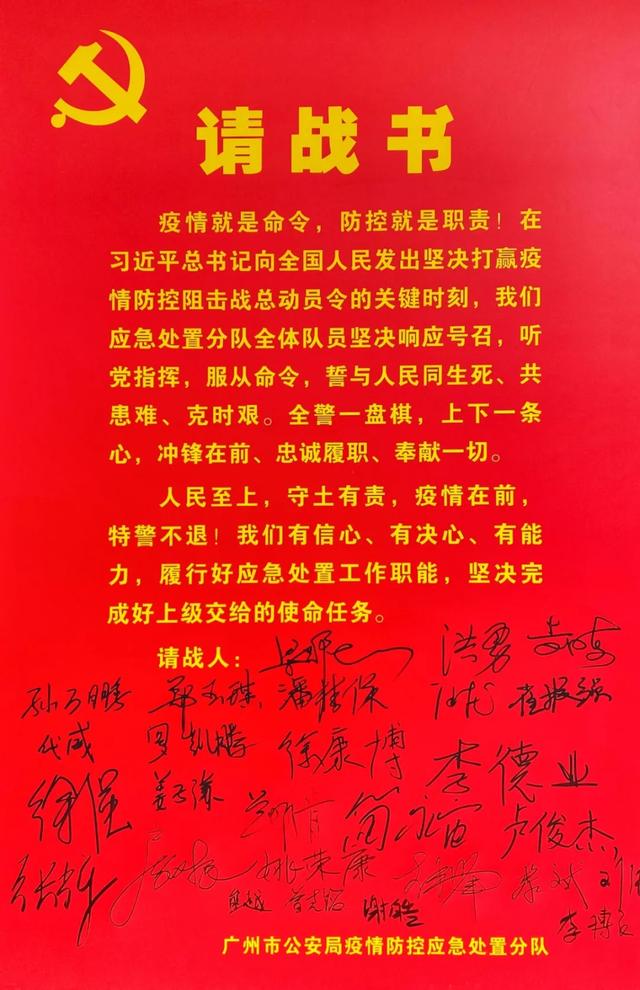 请战书
疫情就是命令，防控就是职责！在
习近平总书记向全国人民发出坚决打赢疫
情防控阻击战总动员令的关键时刻，我们
应急处置分队全体队员坚决响应号召，听
党指挥，服从命令，誓与人民同生死、共
患难、克时艰。全警一盘棋，上下一条
心，冲锋在前、忠诚履职、奉献一切。
人民至上，守土有责，疫情在前，
特警不退！我们有信心、有决心、有能
力，履行好应急处置工作职能，坚决完
成好上级交给的使命任务。
请战人：
洪勇
孙万鹏 潘佳保
代威 徐康博
徐强 李德业
简永富 卢俊杰
姚荣康
谢皓
广州市公安局疫情防控应急处置分队